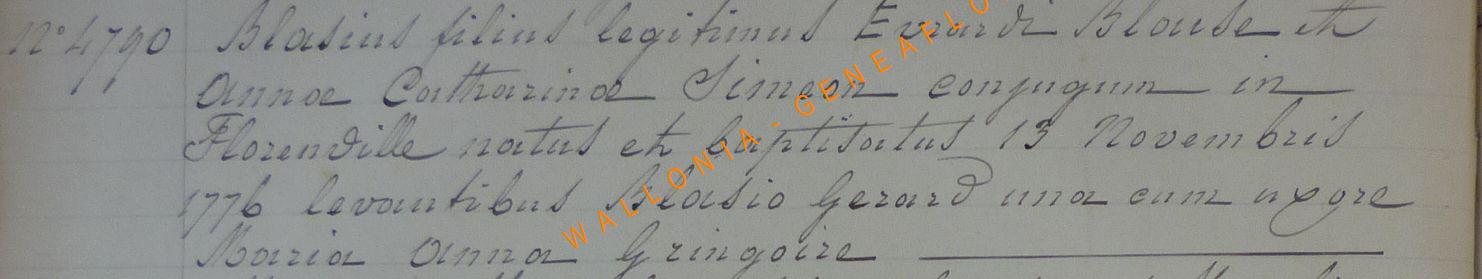 N° 4790 Blasius filius legitimus Evrardi Blause et
Annae Catharinae Simeon conjugum in
Florenville natus et baptisatus 13 Novembris
1776 levantibus Blasio Gerard una cum uxore
Maria Anna Gringoire
WALLONIA - GENEAFLO